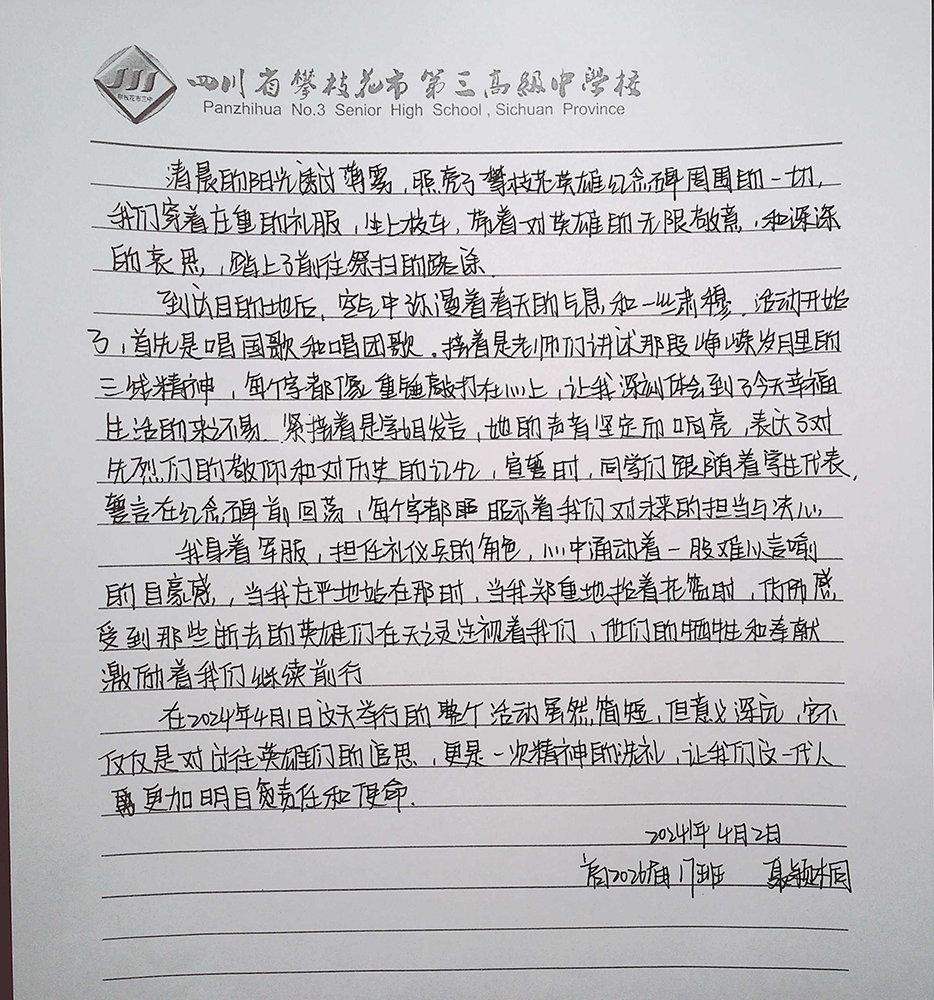 四川省攀枝花市第三高级中学校
Panzhihua No.3 Senior High School, Sichuan Province
攀枝花市三中
清晨的阳光透过薄雾，照亮了攀枝花英雄纪念碑周围的一切，
我们穿着庄重的礼服，坐上校车，带着对英雄的无限敬意，和深深
的哀思，踏上了前往祭扫的路途.
到达目的地后，空气中弥漫着春天的气息和一丝肃穆.活动开始
了，首先是唱国歌和唱团歌.接着是老师们讲述那段峥嵘岁月里的
三线精神，每个字都像重锤敲打在心上，让我深刻体会到了今天幸福
生活的来之不易.紧接着是学姐发言，她的声音坚定而响亮，表达了对
先烈们的敬仰和对历史的记忆，宣誓时，同学们跟随着学生代表，
誓言在纪念碑前回荡，每个字都昭示着我们对未来的担当与决心.
我身着军服，担任礼仪兵的角色，心中涌动着一股难以言喻
的自豪感，当我庄严地站在那时，当我郑重地抬着花篮时，仿佛感
受到那些逝去的英雄们在天之灵注视着我们，他们的牺牲和奉献
激励着我们继续前行
在2024年4月1日这天举行的整个活动虽然简短，但意义深远，它不
仅仅是对过往英雄们的追思，更是一次精神的洗礼，让我们这一代人
更加明白责任和使命.
2024年4月2日
高2026届17班 聂颖桐